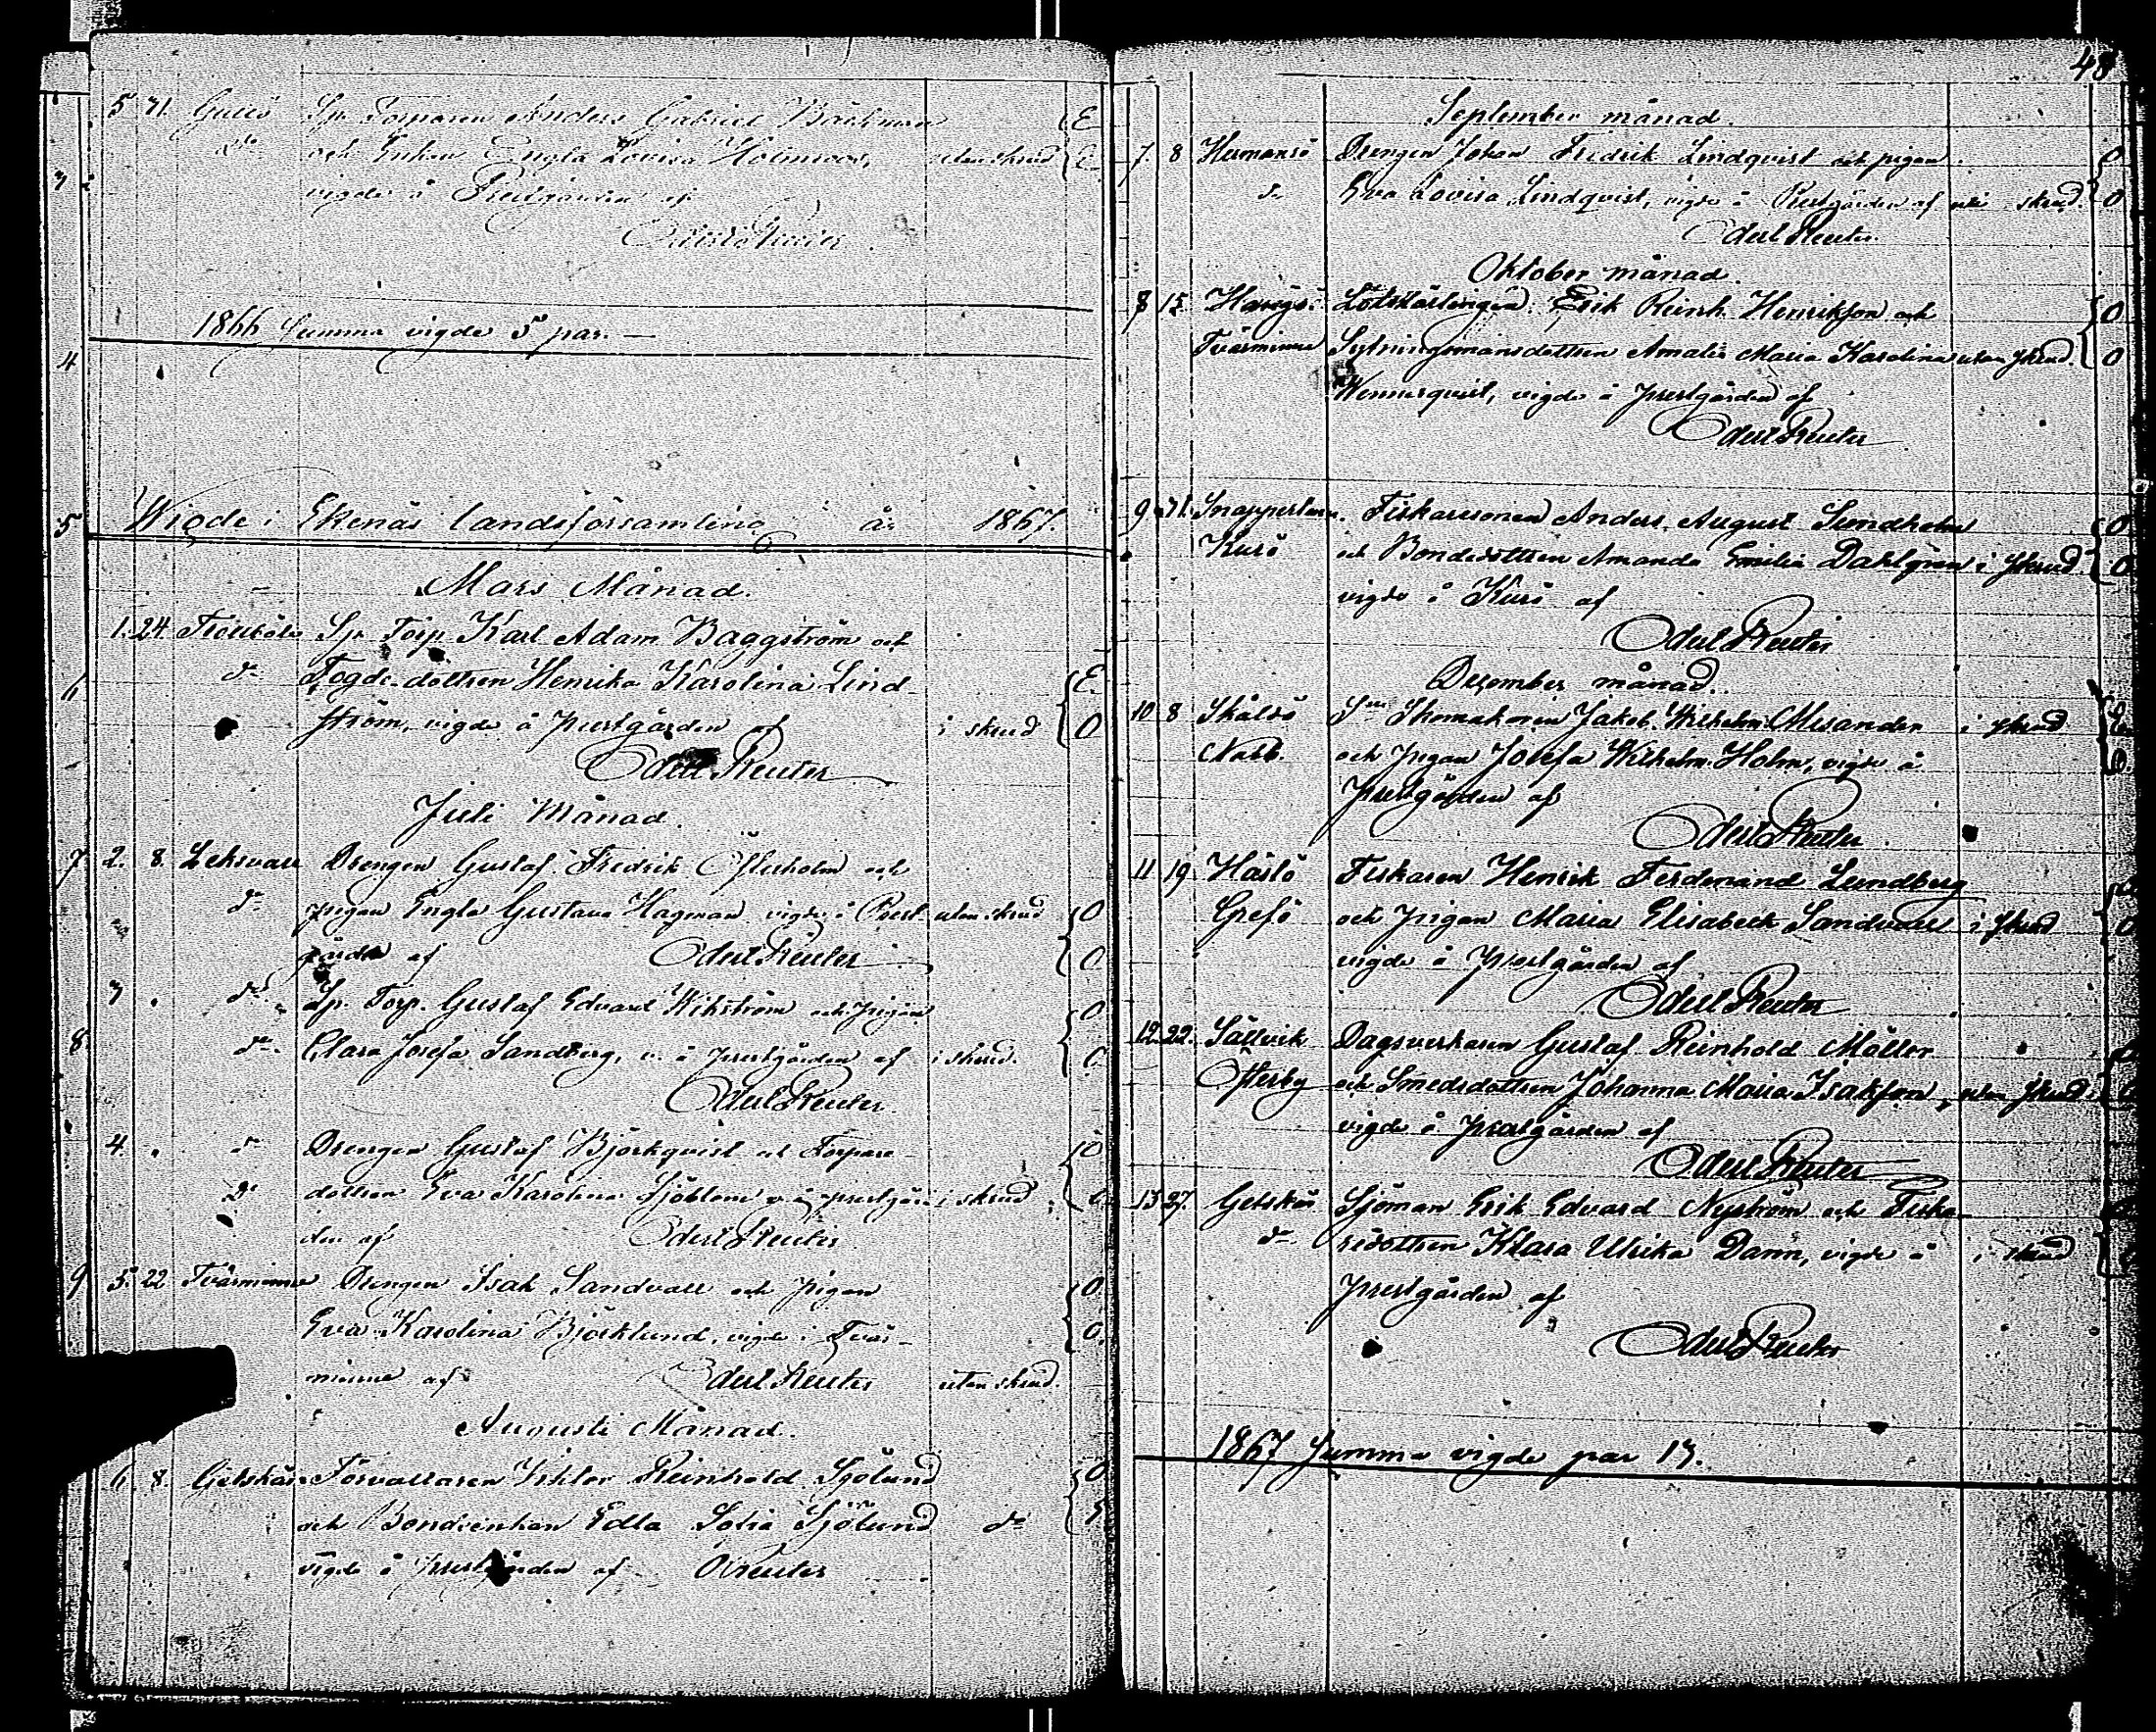 5 31. Gullö Sp. Torparen Anders Gabriel Bäckman E
do och Enkan Engla Lovisa Holmroos, utan skrud E
vigde å Prestgården af
Odert Reuter.
1866 Summa vigde 5 par. —
Wigde i Ekenäs landsförsamling år 1867.
Mars Månad.
1. 24 Sp. Torp. Karl Adam Baggström och
do Fogde-dottren Henrika Karolina Lind- E.
ström, vigde å prestgården af i skrud O
Odert Reuter
Juli Månad.
2. 8. Leksvall Drengen Gustaf Fredrik Österholm och
do pigan Engla Gustava Hagman vigde å Prest- utan skrud O
gården af Odert Reuter O
3 . do Sp. Torp. Gustaf Edvard Wikström och pigan O
do Clara Josefa Sandberg, v. å prestgården af i skrud. O
Odert Reuter
4. . do Drengen Gustaf Björkqvist och Torpare- O
do dottren Eva Karolina Sjöblom v. å prestgår- i skrud O
den af Odert Reuter
5. 22 Tvärminne Drengen Isak Sandvall och pigan O
Eva Karolina Björklund, vigde i Tvär- O
minne af Odert Reuter utan skrud.
Augusti Månad.
6. 8. Getskär Förvaltaren Viktor Reinhold Sjölund O
och Bondeenkan Edla Sofia Sjölund do E
vigde å prestgården af OReuter
48
September månad.
7 8 Hermansö Drengen Johan Fredrik Lindqvist och pigan O
do Eva Lovisa Lindqvist, vigde å Prestgården af utan skrud. O
Odert Reuter.
Oktober månad.
8 15 Lotslärlingen Erik Reinh. Henriksson och O
Tvärminne Sytningsmansdottren Amalia Maria Karolina utan skrud. O
Wennerqvist, vigde å prestgården af
Odert Reuter
9 31. Snappertuna. Fiskaresonen Anders August Sundholm O
Kurö och Bondedottren Amanda Emilia Dahlgren i skrud. O
vigde å Kurö af
Odert Reuter
December månad.
10 8 Skålö Skomakaren Jakob Wilhelm Misander i skrud E
Nabb. och pigan Josefa Wilhelm. Holm, vigde å O.
Prestgården af
Odert Reuter.
11 19 Hästö Fiskaren Henrik Ferdinand Lundberg
Grefö och pigan Maria Elisabeth Sandvall i skrud O
vigde å prestgården af
Odert Reuter
12. 22. Sällvik Dagsverkaren Gustaf Reinhold Möller O
Österby och Smedsdottren Johanna Maria Isaksson, utan skrud.
vigde å prestgården af
Odert Reuter
13 27. Getskär Sjöman Erik Edvard Nyström och Fiska-
do redottren Klara Ulrika Dann, vigde å i skrud
prestgården af
Odert Reuter
1867 Summa vigde par 13.